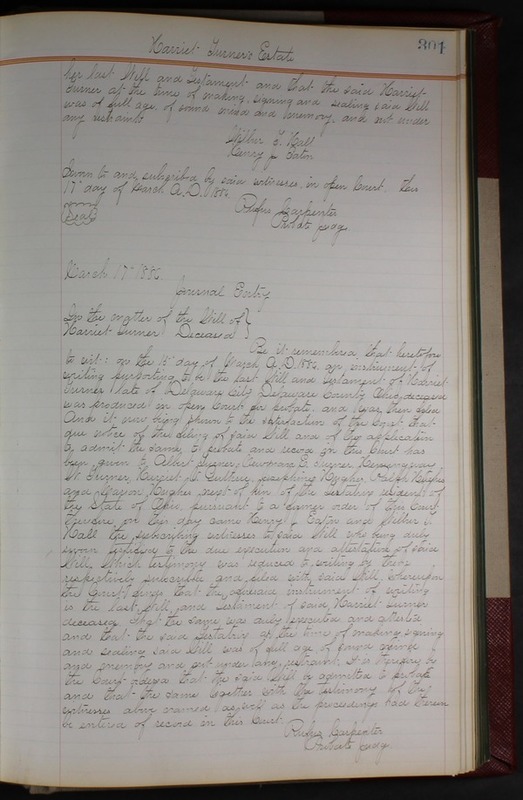 Harriet Turner's Estate
301
her last Will and Testament and that the said Harriet
Turner at the time of making, signing and sealing said Will
was of full age of sound mind and memory and not under
any restraint
Wilbur F. Hall
Henry J. Eaton
Sworn to and subscribed by said witnesses in open Court, this
17" day of March A.D. 1886.
(Seal)
Rufus Carpenter
Probate Judge
March 17" 1886.
Journal Entry
In the matter of the Will of
Harriet Turner Deceased
Be it remembered, that heretofore
to wit: on the 15" day of March A.D. 1886. an instrument of
writing purporting to be the last Will and Testament of Harriet
Turner late of Delaware City Delaware County Ohio, deceased
was produced in open Court for probate, and was then filed
And it now being shown to the satisfaction of the Court that
due notice of the filing of said Will and of the application
to admit the same to probate and record in this Court has
been given to Albert Turner, E. Turner,
W. Turner, Harriet Josephine Hughes, Ralph Hughes
and Hughes next of kin of the testatrix residents of
the State of Ohio, pursuant to a former order of this Court
on this day came Henry J. Eaton and Wilbur F.
Hall the subscribing witnesses to said Will who being duly
sworn testified to the due execution and attestation of said
Will, which testimony was reduced to writing by them
respectively subscribed and filed with said Will, whereupon
the Court finds that the aforesaid instrument of writing
is the last Will and Testament of said Harriet Turner
deceased, that the same was duly executed and attested
and that the said testatrix at the time of making signing
and sealing said Will was of full age of sound mind
and memory and not under any restraint. It is therefore by
the Court ordered that the said Will be admitted to probate
and that the same together with the testimony of the
witnesses above named as well as the proceedings had therein
be entered of record in this Court.
Rufus Carpenter
Probate Judge